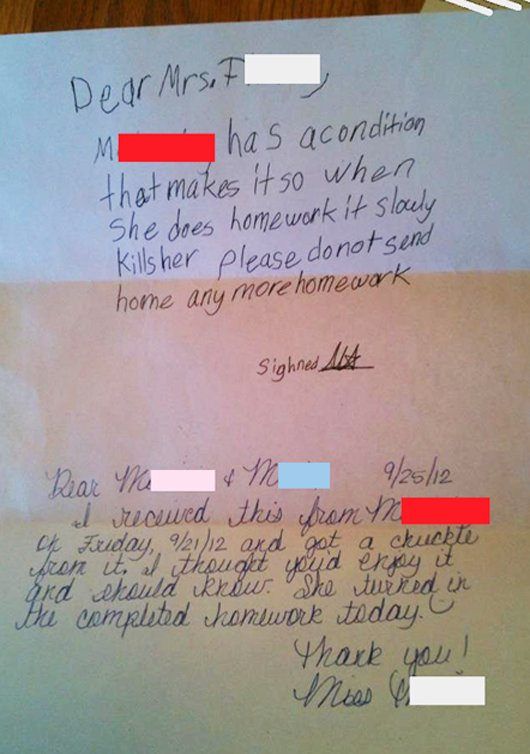 Dear Mrs. F
M has a condition
that makes it so when
She does homework it slowly
kills her please do not send
home any more homework
Sighned
Dear M & M 9/25/12
I received this from M
on Friday, 9/21/12 and got a chuckle
from it. I thought you'd enjoy it
and should know. She turned in
the completed homework today.
Thank you!
Miss